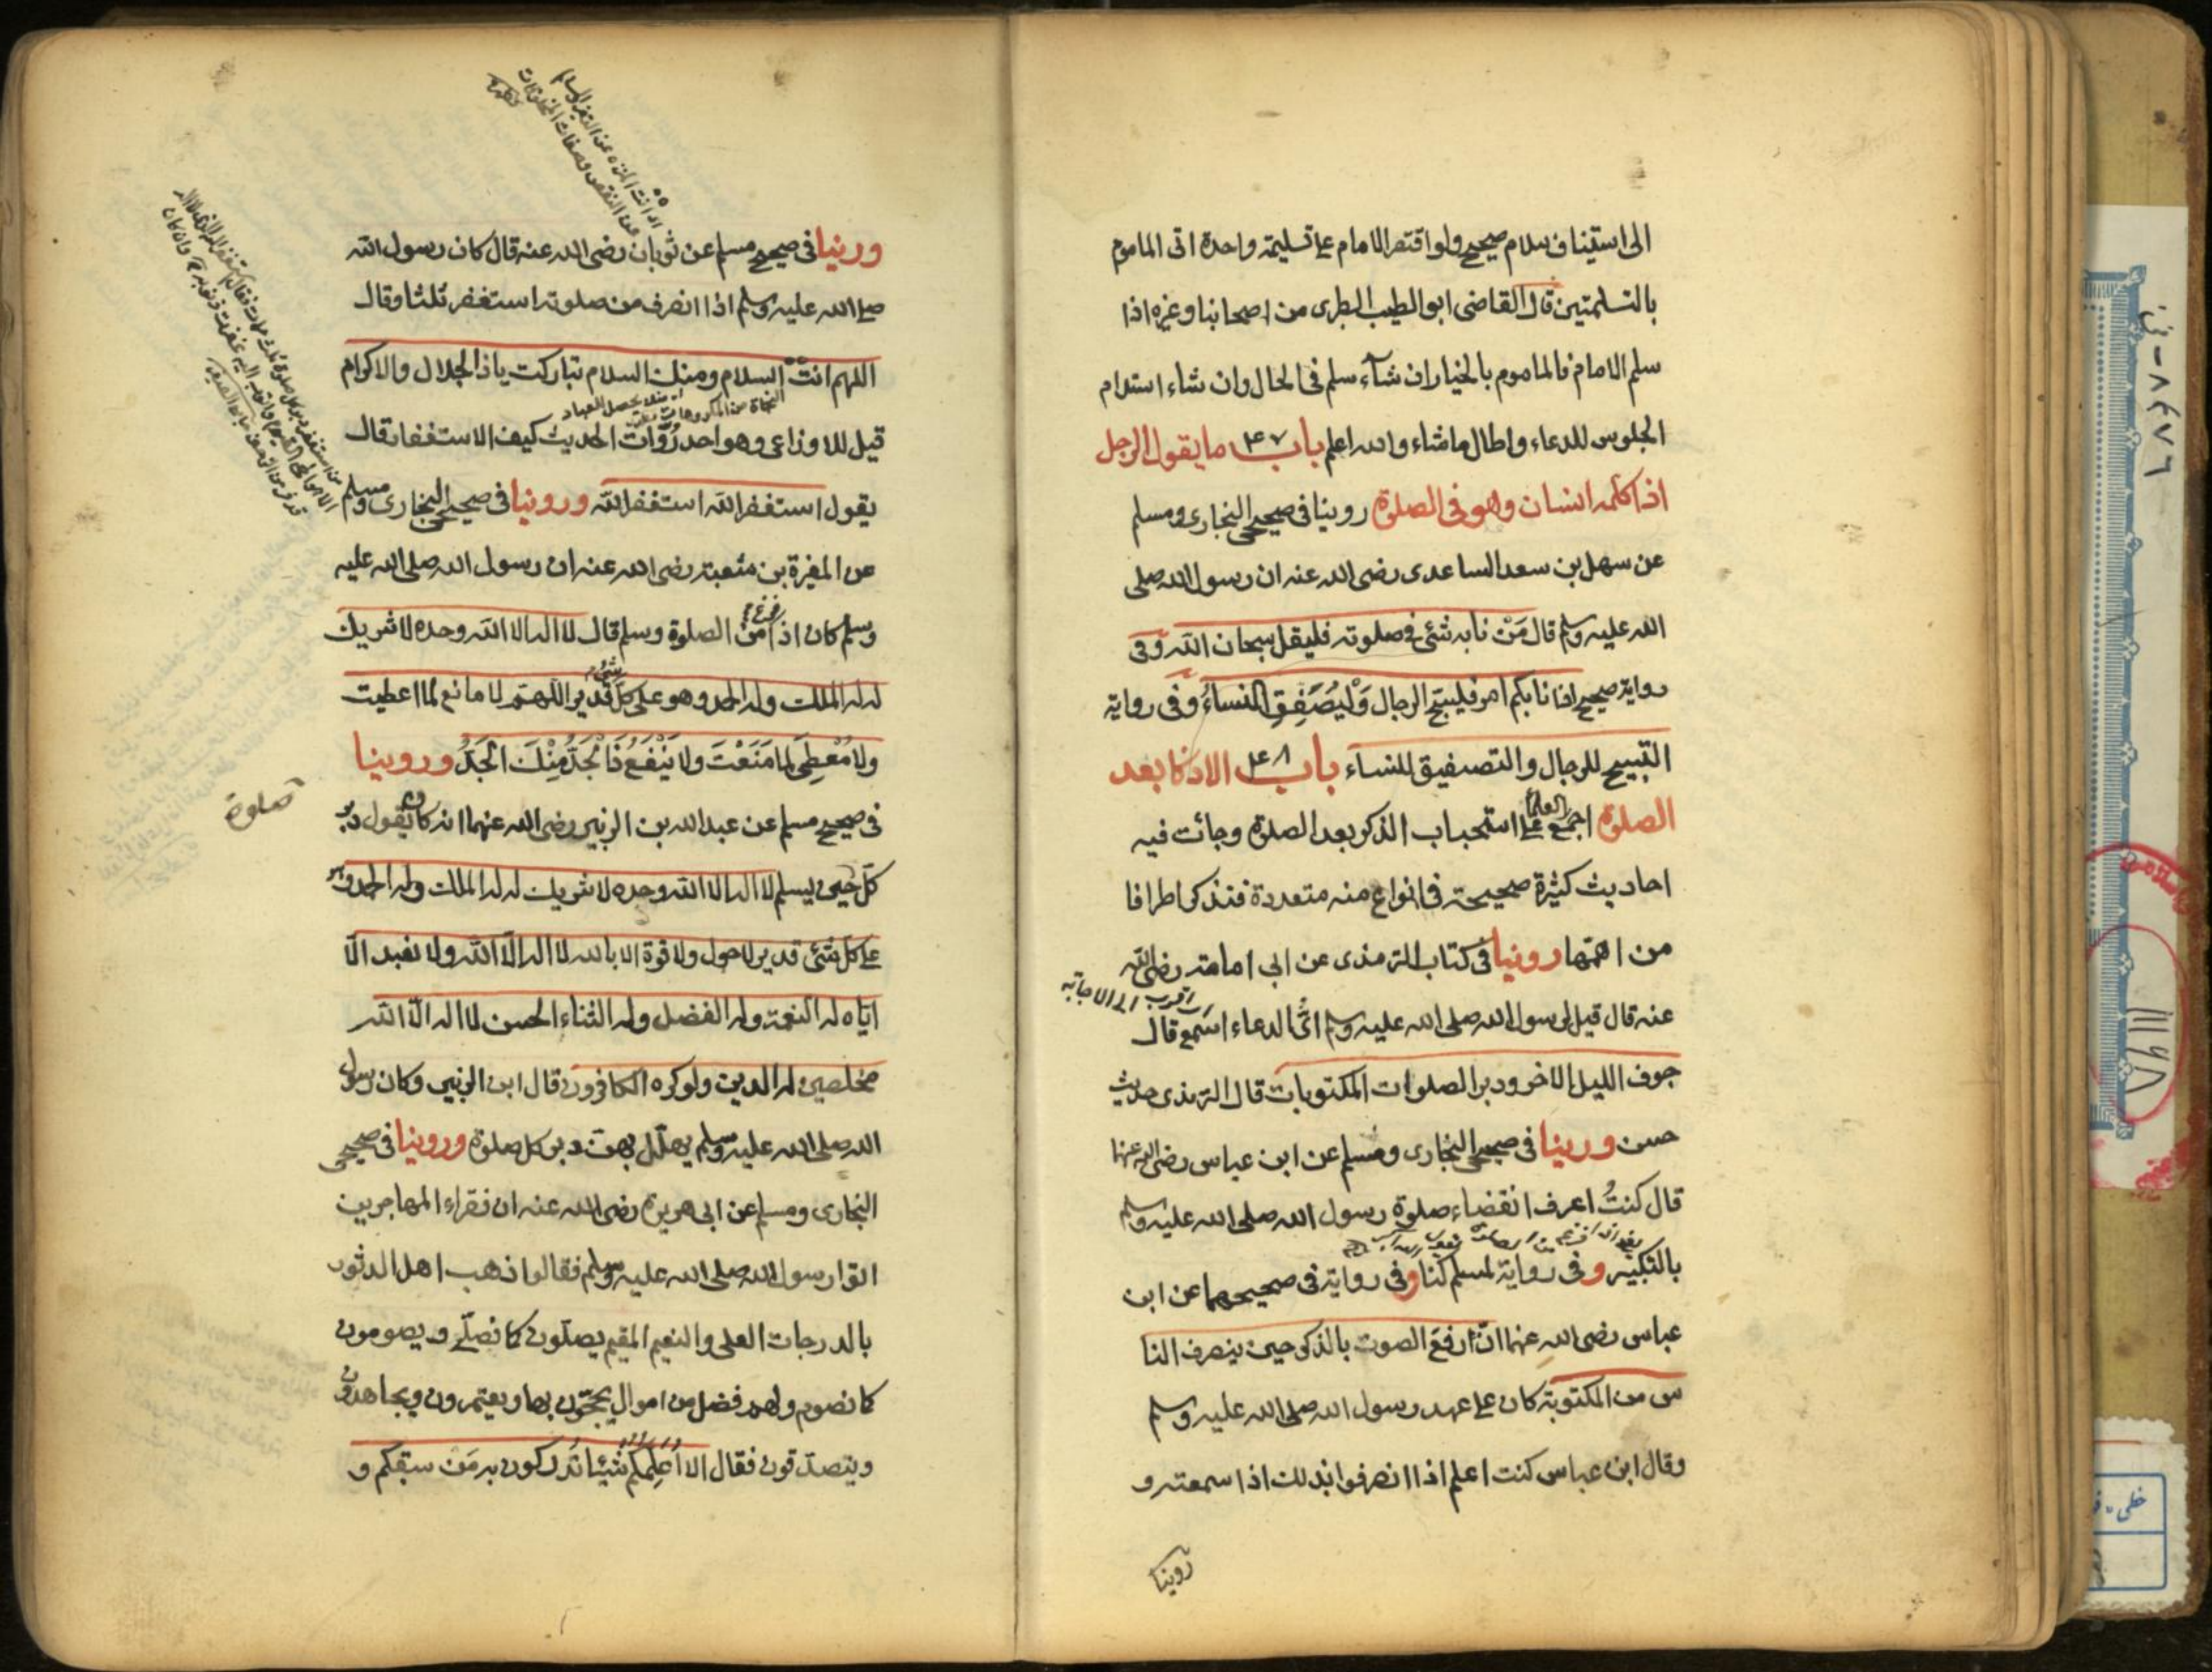 الى استيناف سلام صحيح ولو اقتصر الامام على تسليمة واحدة اتى الماموم
بالتسلمتين قال القاضى ابو الطيب الطبرى من اصحابنا وغيره اذا
سلم الامام فالماموم بالخيار ان شآء سلم فى الحال وان شاء استدام
الجلوس للدعاء واطال ما شاء والله اعلم باب ٤٧ ما يقول الرجل
اذا كلمه انسان وهو فى الصلوة روينا فى صحيحى البخارى ومسلم
عن سهل بن سعد الساعدى رضى الله عنه ان رسول الله صلى
الله عليه وسلم قال مَنْ نابه شئ فى صلوته فليقل سبحان الله وفى
رواية صحيح اذا نابكم امر فليسبح الرجال وَلْيُصَفِقِ النساءُ وفى رواية
التسبيح للرجال والتصفيق للنساء باب ٤٨ الاذكار بعد
الصلوة اجمع العلمآ على استحباب الذكر بعد الصلوة وجائت فيه
احاديث كثيرة صحيحة فى انواع منه متعددة فنذكر اطرافا
من اهمّها روينا فى كتاب الترمذى عن ابى امامة رضى الله
اى اقرب الى الاجابة
عنه قال قيل لرسول الله صلى الله عليه وسلم اىُّ الدعاء اسمع قال
جوف الليل الاخر ودبر الصلوات المكتوبات قال الترمذى حديث
حسن وروينا فى صحيحى البخارى ومسلم عن ابن عباس رضى الله عنهما
قال كنتُ اعرف انقضاء صلوة رسول الله صلى الله عليه وسلم
بالتكبير وفى رواية لمسلم كنا وفى رواية فى صحيحهما عن ابن
عباس رضى الله عنهما انّ رفعَ الصوت بالذكر حين ينصرف النا
س من المكتوبة كان على عهد رسول الله صلى الله عليه وسلم
وقال ابن عباس كنت اعلم اذا انصرفوا بذلك اذا سمعته و
روينا
وروينا فى صحيح مسلم عن ثوبان رضى الله عنه قال كان رسول الله
صلى الله عليه وسلم اذا انصرف من صلوته استغفر ثلثا وقال
اللهم انت السلام ومنك السلام تباركت يا ذا الجلال والاكرام
قيل للاوزاعى وهو احد رُوَّات الحديث كيف الاستغفار قال
يقول استغفر الله استغفر الله وروينا فى صحيحى البخارى ومسلم
عن المغيرة بن شعبة رضى الله عنه ان رسول الله صلى الله عليه
وسلم كان اذا فرغ من الصلوة وسلم قال لا اله الا الله وحده لا شريك
له له الملك وله الحمد وهو على كلّ شئ قدير اللهم لا مانع لما اعطيت
ولا مُعْطِىَ لما مَنَعْتَ ولا يَنْفَعُ ذَا الْجَدِّ مِنْكَ الْجَدُّ وروينا
فى صحيح مسلم عن عبد الله بن الزبير رضى الله عنهما انه كان يقول دبر
صلوة
كلّ حين يسلم لا اله الا الله وحده لا شريك له له الملك وله الحمد وهو
على كل شئ قدير لا حول ولا قوة الا بالله لا اله الّا الله ولا نعبد الّا
ايّاه له النعمة وله الفضل وله الثناء الحسن لا اله الّا الله
مخلصين له الدين ولو كره الكافرون قال ابن الزبير وكان رسول
الله صلى الله عليه وسلم يهلّل بهن دبر كل صلوة وروينا فى صحيحى
البخارى ومسلم عن ابى هريرة رضى الله عنه ان فقراء المهاجرين
اتوا رسول الله صلى الله عليه وسلم فقالوا ذهب اهل الدثور
بالدرجات العلى والنعيم المقيم يصلّون كما نصلّى ويصومون
كما نصوم ولهم فضل من اموال يحجّون بها ويعتمرون ويجاهدون
ويتصدّقون فقال الا اعلمكم شيئا تدركون به مَن سبقكم و